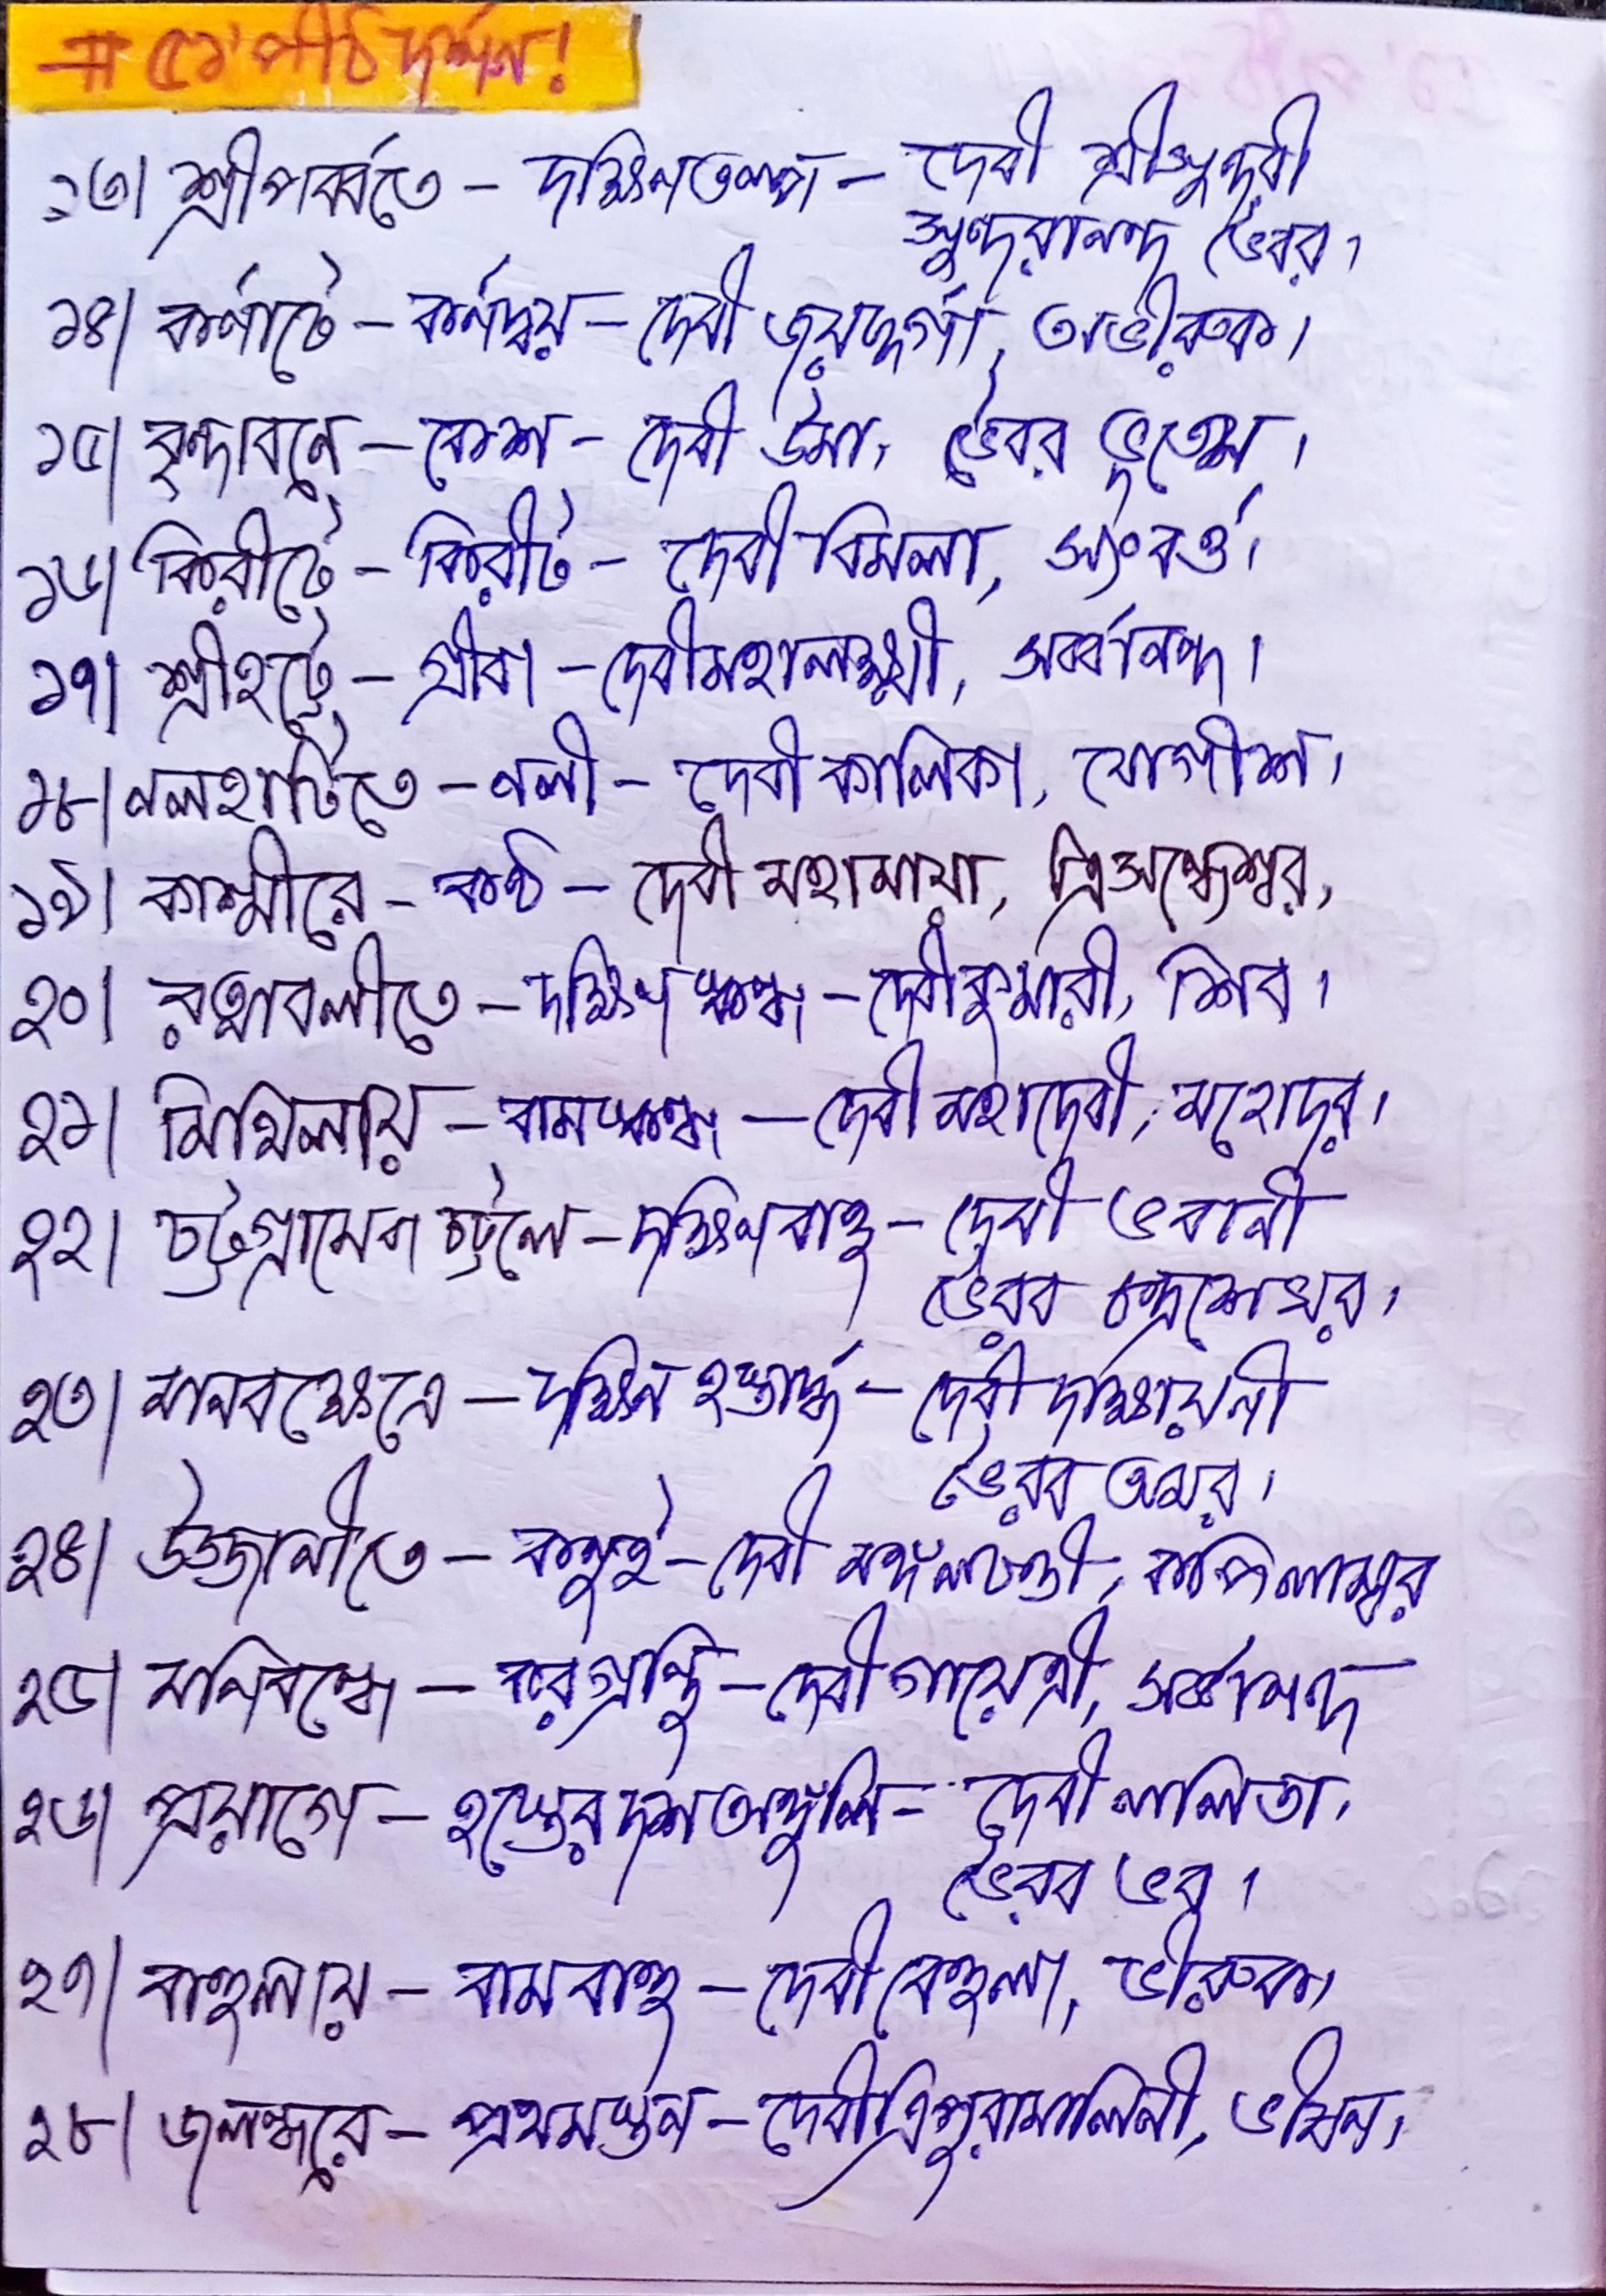 # ৫১'পীঠ দর্শন!
১৩। শ্রীপর্ব্বতে - দক্ষিনতলপা - দেবী শ্রীসুন্দরী
সুন্দরানন্দ ভৈবর।
১৪। কর্ণাটে - কর্নদ্বয় - দেবী জয়দুর্গা, অভীরুক।
১৫। বৃন্দাবনে - কেশ - দেবী উমা, ভৈবর ভূতেশ।
১৬। কিরীটে - কিরীট - দেবী বিমলা, সংবর্ত্ত।
১৭। শ্রীহট্টে - গ্রীবা - দেবীমহালক্ষ্মী, সর্ব্বানন্দ।
১৮। নলহাটিতে - নলী - দেবী কালিকা, যোগীশ।
১৯। কাশ্মীরে - কণ্ঠ - দেবী মহামায়া, ত্রিসন্ধ্যেশ্বর,
২০। রত্নাবলীতে - দক্ষিণ স্কন্ধ - দেবীকুমারী, শিব।
২১। মিথিলায় - বামস্কন্ধ - দেবী মহাদেবী, মহোদর।
২২। চট্টগ্রামের চট্টলে - দক্ষিণ বাহু - দেবী ভবানী
ভৈরব চন্দ্রশেখর।
২৩। মানবক্ষেত্রে - দক্ষিন হস্তার্দ্ধ - দেবী দাক্ষায়নী
ভৈরব অমর।
২৪। উজ্জানীতে - কনুই - দেবী মঙ্গলচন্ডী, কপিলাম্বর
২৫। মনিবন্ধে - করগ্রন্থি - দেবী গায়েত্রী, সর্ব্বানন্দ
২৬। প্রয়াগে - হস্তের দশ অঙ্গুলি - দেবী ললিতা,
ভৈরব ভব।
২৭। বাহুলায় - বাম বাহু - দেবী বেহুলা, ভীরুক,
২৮। জলন্ধরে - প্রথমস্তন - দেবী ত্রিপুরামালিনী, ভীষন,